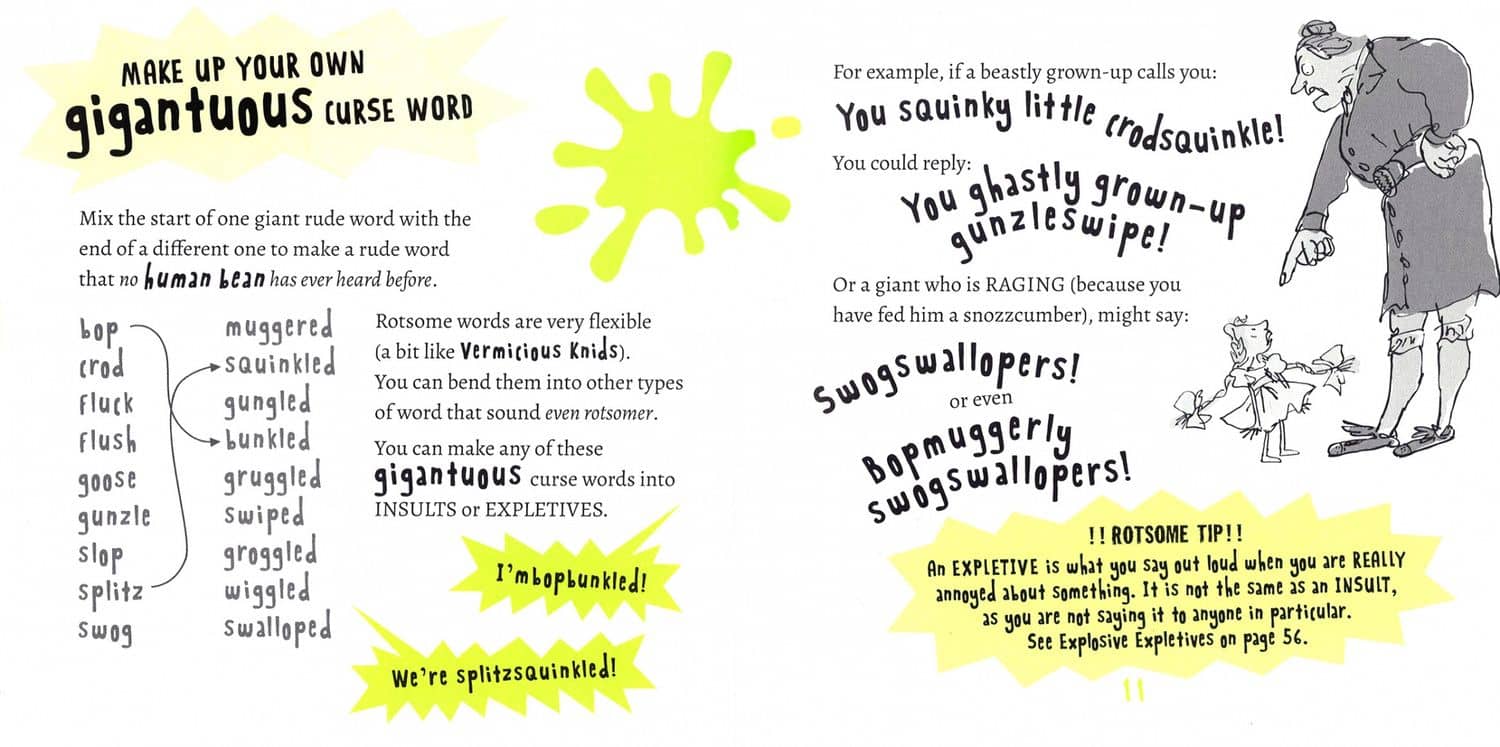 MAKE UP YOUR OWN
gigantuous CURSE WORD
Mix the start of one giant rude word with the
end of a different one to make a rude word
that no human bean has ever heard before.
bop
crod
fluck
flush
goose
gunzle
slop
splitz
swog
muggered
squinkled
gungled
bunkled
gruggled
swiped
groggled
wiggled
swalloped
Rotsome words are very flexible
(a bit like Vermicious Knids).
You can bend them into other types
of word that sound even rotsomer.
You can make any of these
gigantuous curse words into
INSULTS or EXPLETIVES.
I'mbopbunkled!
We're splitzsquinkled!
For example, if a beastly grown-up calls you:
You squinky little crodsquinkle!
You could reply:
You ghastly grown-up
gunzleswipe!
Or a giant who is RAGING (because you
have fed him a snozzcumber), might say:
Swogswallopers!
or even
Bopmuggerly
swogswallopers!
!! ROTSOME TIP!!
An EXPLETIVE is what you say out loud when you are REALLY
annoyed about something. It is not the same as an INSULT,
as you are not saying it to anyone in particular.
See Explosive Expletives on page 56.
11